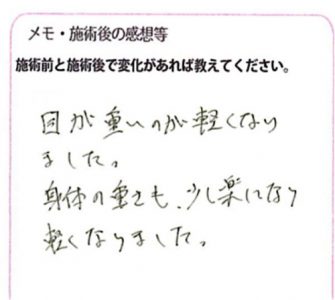 メモ・施術後の感想等
施術前と施術後で変化があれば教えてください。
目が重いのが軽くなり
ました。
身体の重さも、少し楽になり
軽くなりました。